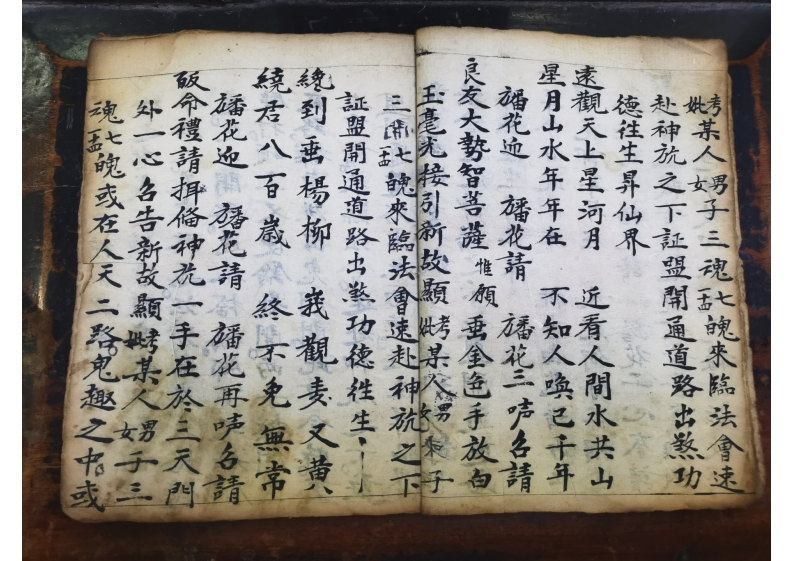 考妣某人男女子三魂七魄來臨法會速
赴神旐之下証盟開通道路出煞功
德徃生昇仙界
遠觀天上星河月 近看人間水共山
星月山水年年在 不知人喚已千年
旙花迎 旙花請 旙花三唥名請
良友大勢智菩薩 惟願 垂金色手放白
玉毫光接引新故顯考妣某人男女子
三 七魄來臨法會速赴神旐之下
証盟開通道路出煞功德徃生
纔到垂楊柳 我觀麦又黄
繞君八百歲 終不免無常
旙花迎 旙花請 旙花再唥名請
皈命禮請 俻神旐一手在於三天門
外一心名告新故顯考妣某人男女子三
魂七魄或在人天二路鬼趣之中或